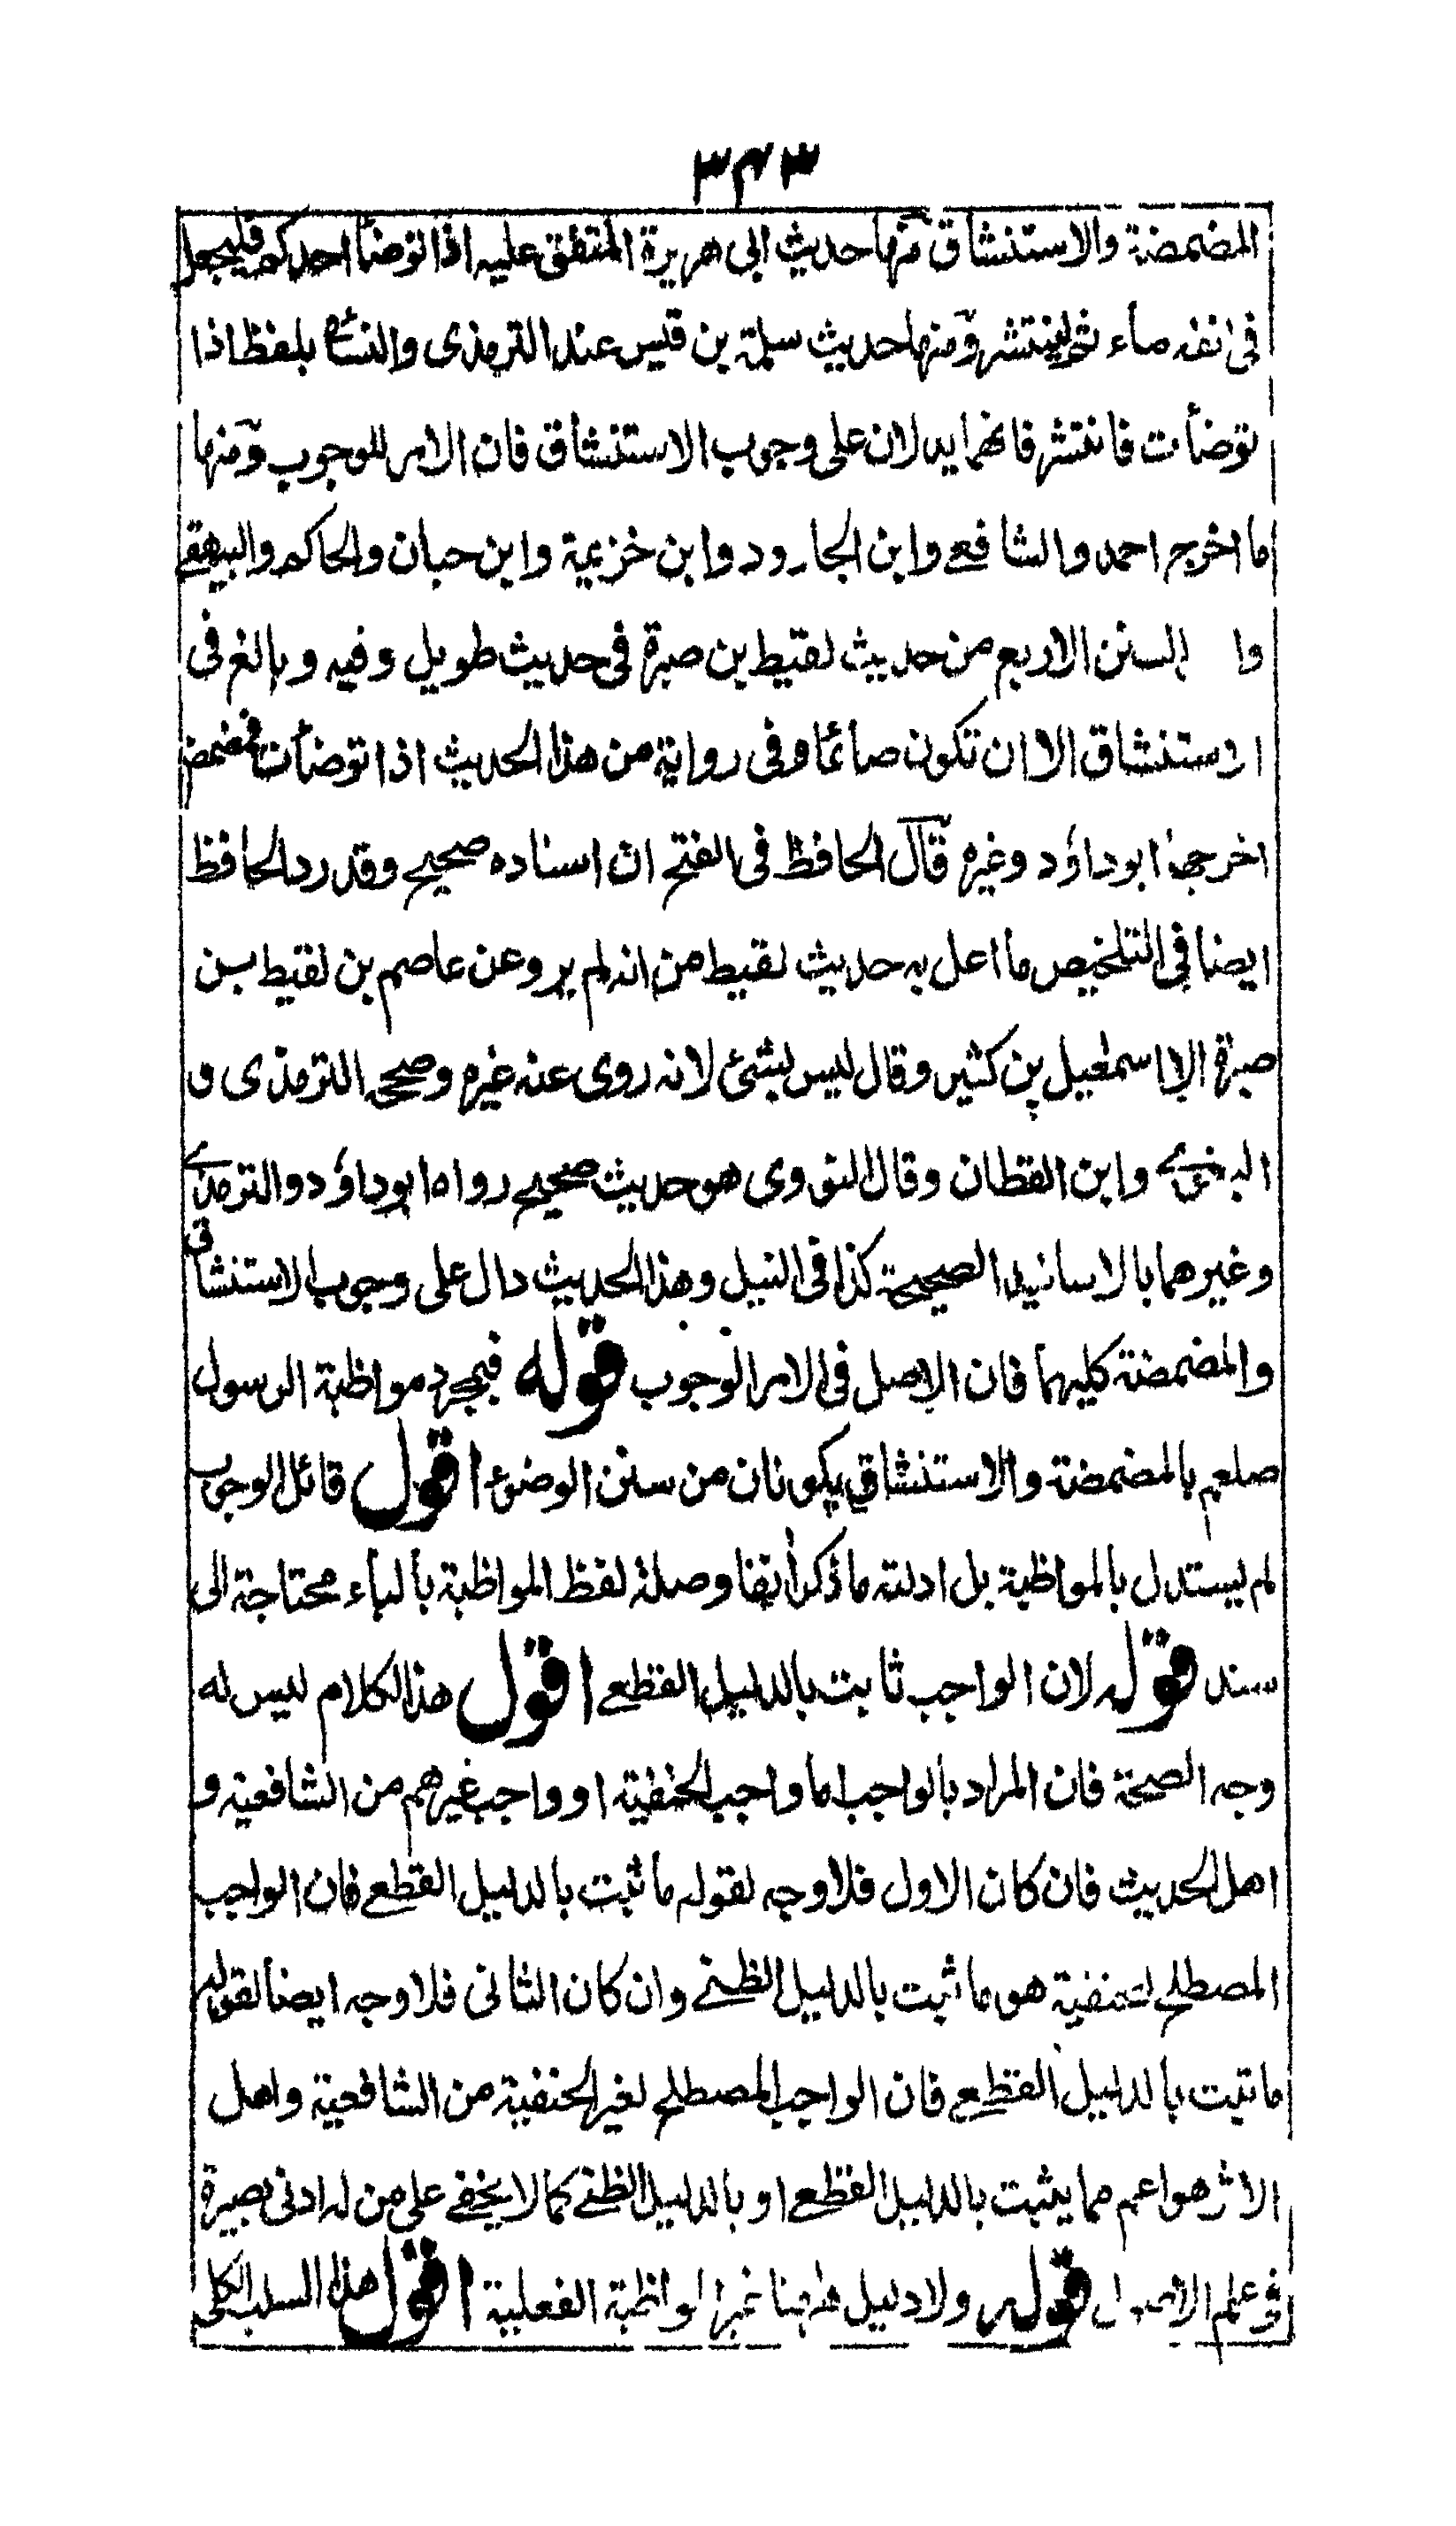 ٣٤٣
المضمضة والاستنشاق منها حديث ابى هريرة المتفق عليه اذا توضأ احدكم فليجعل
فى انفه ماء ثم لينتثر ومنها حديث سلمة بن قيس عند الترمذى والنسائى بلفظ اذا
توضأت فانتثر فانهما يدلان على وجوب الاستنشاق فان الامر للوجوب ومنها
ما اخرج احمد والشافعے وابن الجارود وابن خزيمة وابن حبان والحاكم والبيهقے
وا السنن الاربع من حديث لقيط بن صبرة فى حديث طويل وفيه وبالغ فى
الاستنشاق الا ان تكون صائما وفى رواية من هذا الحديث اذا توضأت فمضمض
اخرجها ابوداؤد وغيره قال الحافظ فى الفتح ان اسناده صحيح وقد رد الحافظ
ايضا فى التلخيص ما اعل به حديث لقيط من انه لم يرو عن عاصم بن لقيط بن
صبرة الا اسمعيل بن كثير وقال ليس بشئ لانه روى عنه غيره وصححه الترمذى و
البغوے وابن القطان وقال النووى هو حديث صحيح رواه ابوداؤد والترمذے
وغيرهما بالاسانيد الصحيحة كذا فى النيل وهذا الحديث دال على وجوب الاستنشاق
والمضمضة كليهما فان الاصل فى الامر الوجوب قوله فبمجرد مواظبة الرسول
صلعم بالمضمضة والاستنشاق يكونان من سنن الوضوء اقول قائل الوجوب
لم يستدل بالمواظبة بل ادلته ما ذكر آنفا وصلة لفظ المواظبة بالباء محتاجة الى
سند قوله لان الواجب ثابت بالدليل القطعے اقول هذا الكلام ليس له
وجه الصحة فان المراد بالواجب اما واجب الحنفية او واجب غيرهم من الشافعية و
اهل الحديث فان كان الاول فلا وجه لقوله ما ثبت بالدليل القطعے فان الواجب
المصطلح لحنفية هو ما ثبت بالدليل الظنے وان كان الثانى فلا وجه ايضا لقوله
ما ثبت بالدليل القطعے فان الواجب المصطلح لغير الحنفية من الشافعية واهل
الأثر هو اعم مما يثبت بالدليل القطعے او بالدليل الظنے كما لا يخفے على من له ادنى بصيرة
فى علم الاصول قوله ولا دليل ههنا غير المواظبة الفعلية اقول هذا السلب الكلى